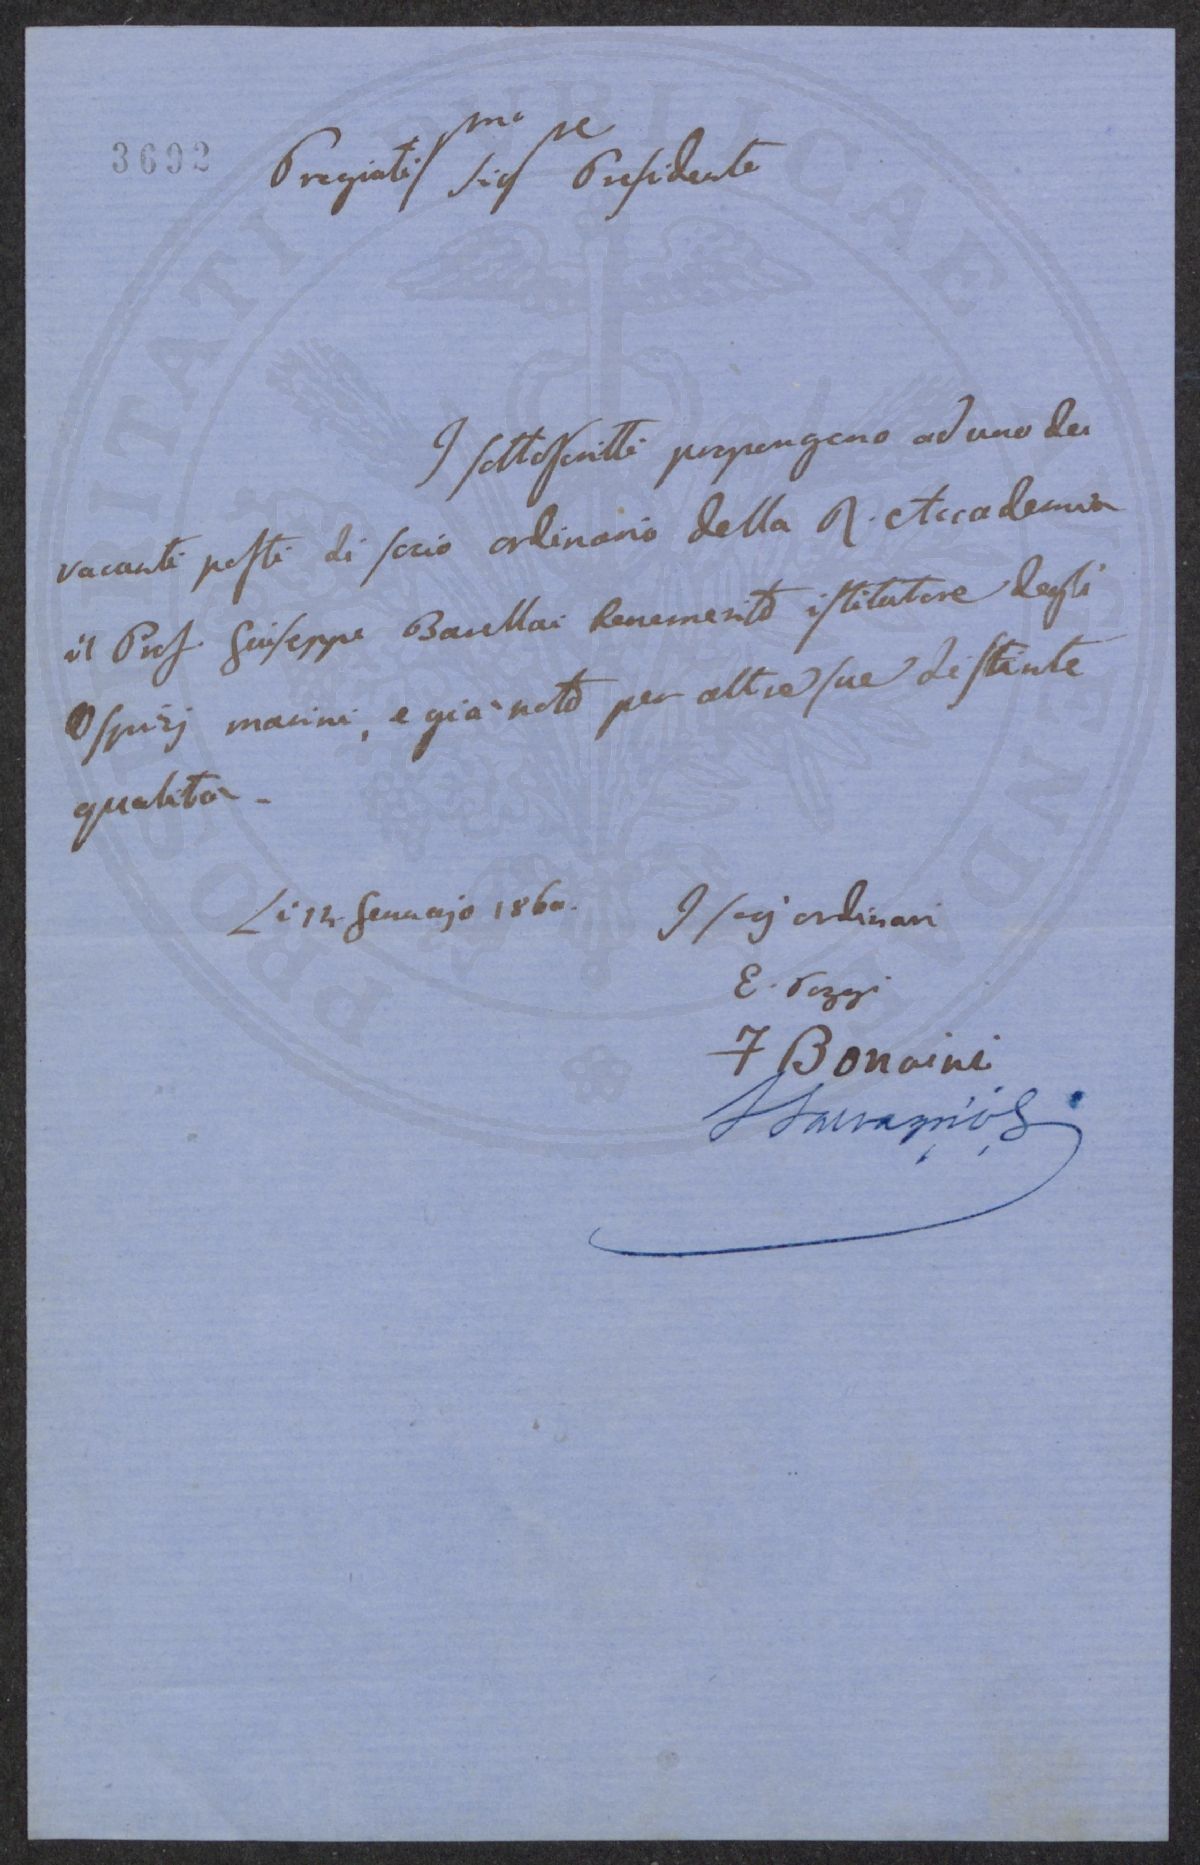 3692
Pregiatiss.mo Sig.re Presidente
I sottoscritti propongono ad uno dei
vacanti posti di socio ordinario della R. Accademia
il Prof. Giuseppe Barellai benemerito istitutore degli
Ospizj marini, e già noto per altre sue distinte
qualità -
Li 12 Gennajo 1860.
I socj ordinari
E. Poggi
F Bonaini
PROSPERITATI PUBLICAE AUGENDAE